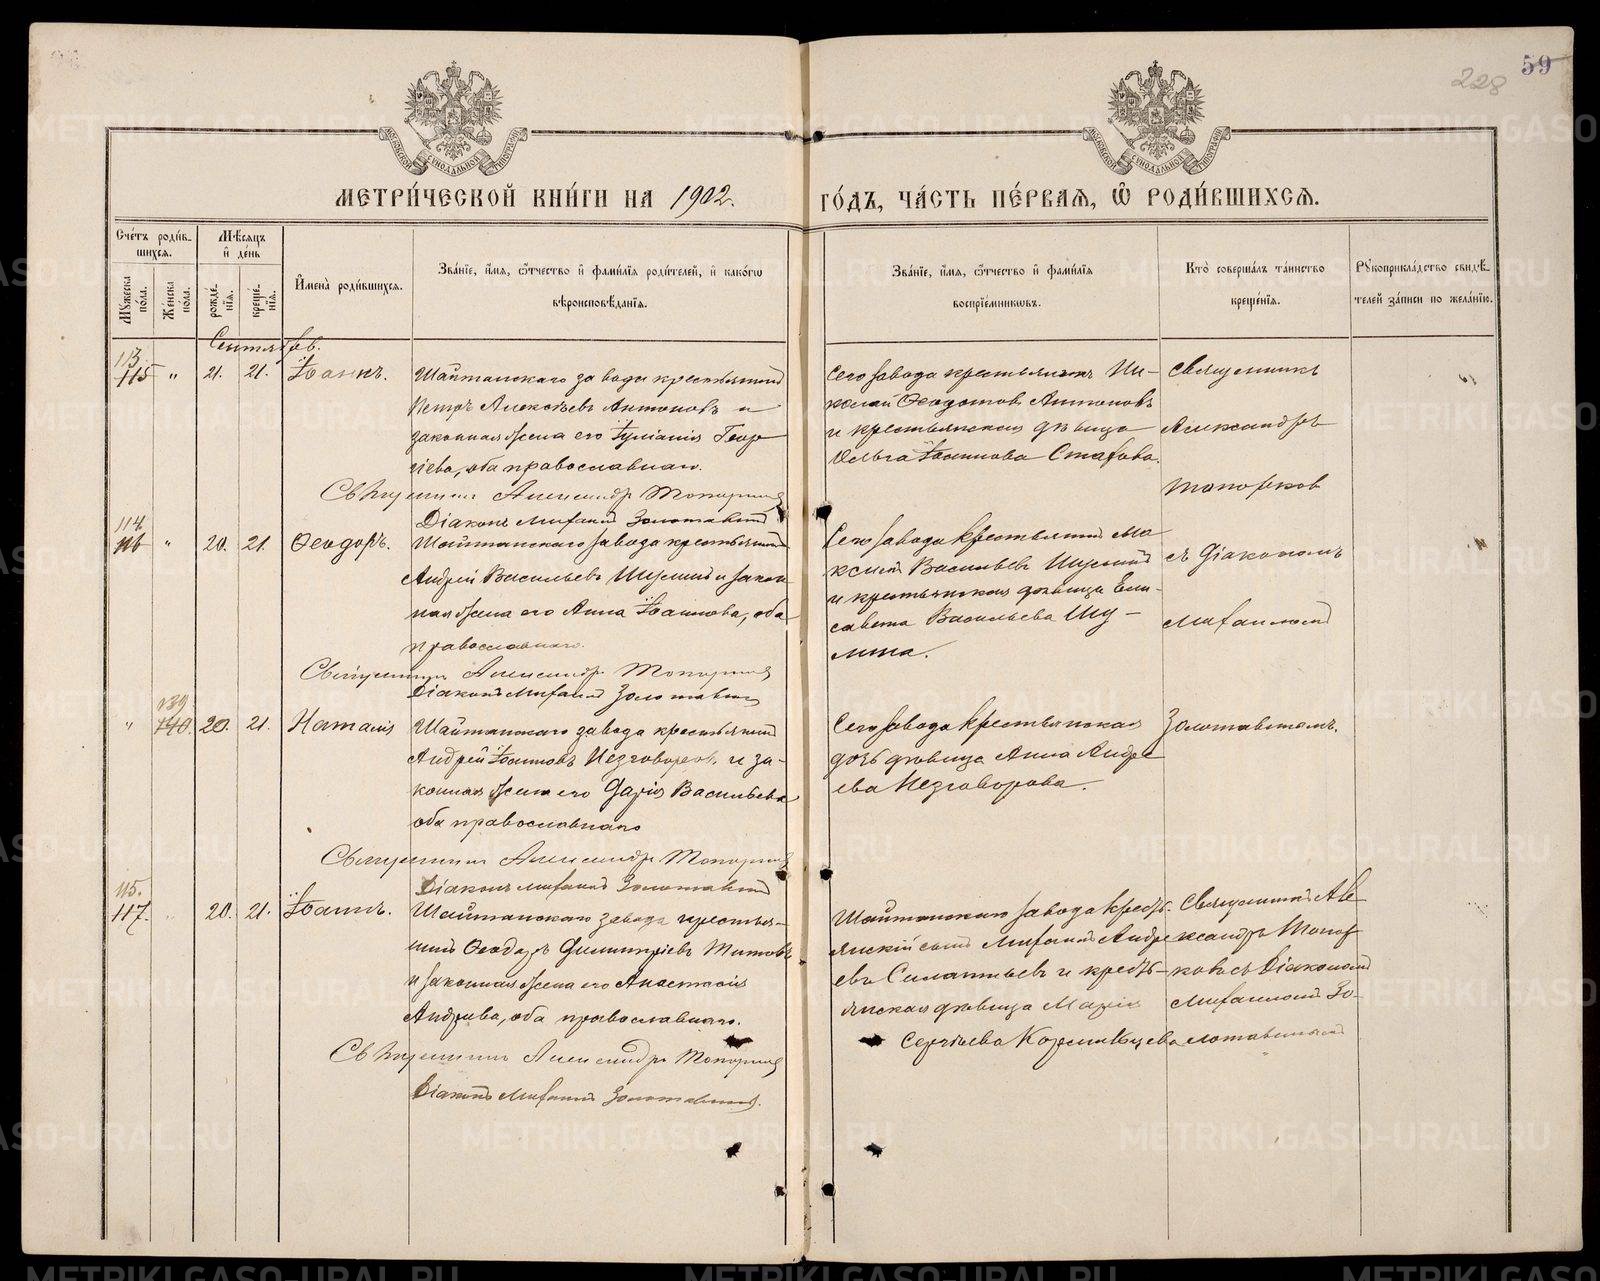 59
228
МОСКОВСКОЙ СѴНОДАЛЬНОЙ ТИПОГРАФІИ
МОСКОВСКОЙ СѴНОДАЛЬНОЙ ТИПОГРАФІИ
МЕТРИ́ЧЕСКОЙ КНИ́ГИ НА 1902. ГО́ДЪ, ЧА́СТЬ ПЕ́РВАѦ, Ѽ РОДИ́ВШИХСѦ.
Сче́тъ роди́в-
шихсѧ.
Мꙋ́жеска по́ла.
Же́нска по́ла.
Мѣ́сѧцъ
и҆ де́нь
рожде́-
нїѧ.
креще́-
нїѧ.
И҆мена̀ роди́вшихсѧ.
Зва́нїе, и҆́мѧ, ѻ҆́тчество и҆ фамѝлїѧ роди́телей, и҆ како́гѡ
вѣроисповѣ́данїѧ.
Зва́нїе, и҆́мѧ, ѻ҆́тчество и҆ фами́лїѧ
воспрїе́мникѡвъ.
Кто̀ соверша́лъ та́инство
креще́нїѧ.
Рꙋкоприкла́дство свидѣ́-
телей за́писи по жела́нїю.
Сентябрь.
113.
115 " 21. 21. Іоаннъ.
Шайтанскаго завода крестьянинъ
Петръ Алексѣевъ Антоновъ и
законная жена его Іуліанія Геор-
гіева, оба православнаго.
Священникъ Александръ Топорковъ
Діаконъ Михаилъ Золотавинъ
Сего завода крестьянинъ Ни-
колай Ѳеодотовъ Антоновъ
и крестьянская дѣвица
Ольга Іоаннова
Священникъ
Александръ
Топорковъ
114
116 " 20. 21. Ѳеодоръ.
Шайтанскаго завода крестьянинъ
Андрей Васильевъ Шумиинъ и закон-
ная жена его Анна Іоаннова, оба
православнаго.
Священникъ Александръ Топорковъ
Діаконъ Михаилъ Золотавинъ
Сего завода крестьянинъ Ма-
ксимъ Васильевъ
и крестьянская дѣвица Ели-
савета Васильева
съ діакономъ
Михаиломъ
139
" 140. 20. 21. Наталія
Шайтанскаго завода крестьянинъ
Андрей Іоанновъ Незговоровъ и за-
конная жена его Дарія Васильева
оба православнаго
Священникъ Александръ Топорковъ
Діаконъ Михаилъ Золотавинъ
Сего завода крестьянская
дочь дѣвица Анна Андре-
ева Незговорова.
Золотавинымъ.
115.
117. 20. 21. Іоаннъ.
Шайтанскаго завода крестья-
нинъ Ѳеодоръ Димитріевъ Титовъ
и законная жена его Анастасія
Андреева, оба православнаго.
Священникъ Александръ Топорковъ
Діаконъ Михаилъ Золотавинъ.
Шайтанскаго завода кресть-
янскій сынъ Михаилъ Андре-
евъ Силантьевъ и кресть-
янская дѣвица Марія
Сергіева
Священникъ Але-
ксандръ Топор-
ковъ съ діакономъ
Михаиломъ Зо-
лотавинымъ
METRIKI.GASO-URAL.RU